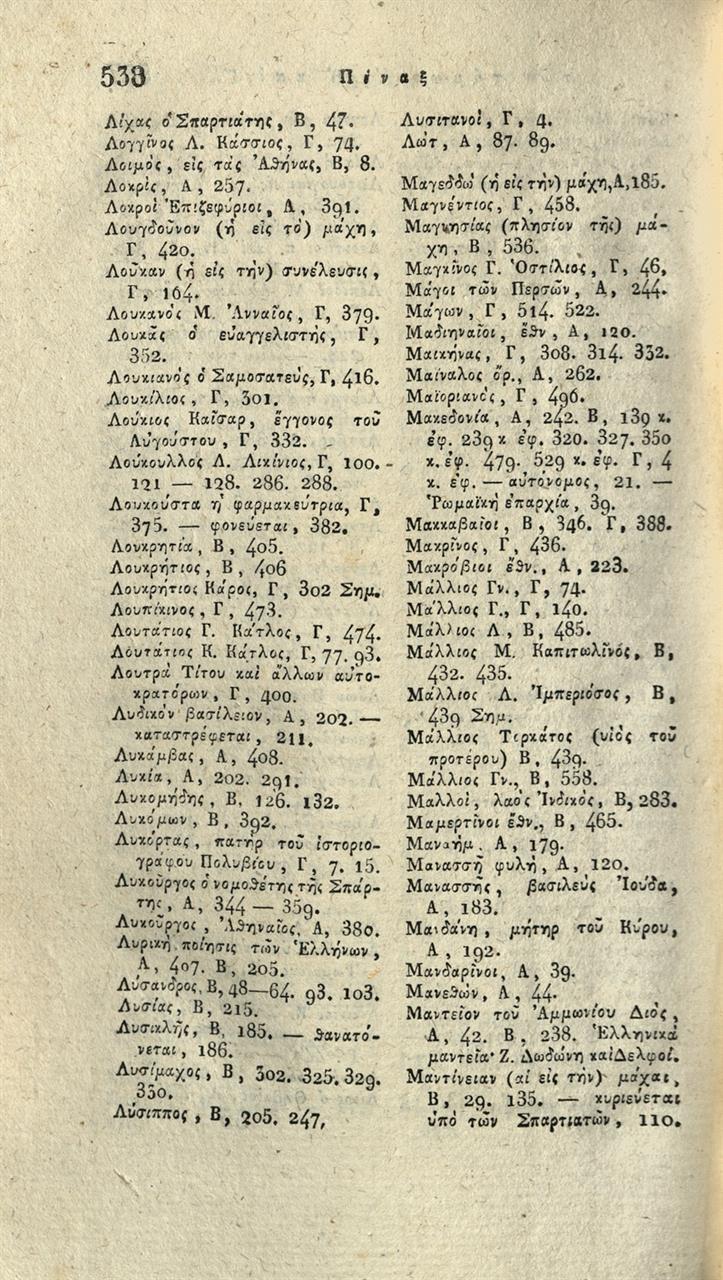 538
Πίναξ
Λίχας ὁ Σπαρτιάτης, Β, 47.
Λογγῖνος Λ. Κάσσιος, Γ, 74.
Λοιμὸς, εἰς τὰς Ἀθήνας, Β, 8.
Λοκρὶς, Α, 257.
Λοκροὶ Ἐπιζεφύριοι, Α, 391.
Λουγδοῦνον (ἡ εἰς τὸ) μάχη,
Γ, 420.
Λοῦκαν (ἡ εἰς τὴν) συνέλευσις,
Γ, 164.
Λουκανὸς Μ. Ἀνναῖος, Γ, 379.
Λουκᾶς ὁ εὐαγγελιστὴς, Γ,
352.
Λουκιανὸς ὁ Σαμοσατεὺς, Γ, 416.
Λουκίλιος, Γ, 301.
Λούκιος Καῖσαρ, ἔγγονος τοῦ
Αὐγούστου, Γ, 332.
Λούκουλλος Λ. Λικίνιος, Γ, 100.
121 — 128. 286. 288.
Λουκούστα ἡ φαρμακεύτρια, Γ,
375. — φονεύεται, 382.
Λουκρητία, Β, 405.
Λουκρήτιος, Β, 406
Λουκρήτιος Κάρος, Γ, 302 Σημ.
Λουπίκινος, Γ, 473.
Λουτάτιος Γ. Κάτλος, Γ, 474.
Λουτάτιος Κ. Κάτλος, Γ, 77. 93.
Λουτρὰ Τίτου καὶ ἄλλων αὐτο-
κρατόρων, Γ, 400.
Λυδικὸν βασίλειον, Α, 202. —
καταστρέφεται, 211.
Λυκάμβας, Α, 408.
Λυκία, Α, 202. 291.
Λυκομήδης, Β, 126. 132.
Λυκόμων, Β, 392.
Λυκόρτας, πατὴρ τοῦ ἱστοριο-
γράφου Πολυβίου, Γ, 7. 15.
Λυκοῦργος ὁ νομοθέτης τῆς Σπάρ-
της, Α, 344 — 359.
Λυκοῦργος, Ἀθηναῖος, Α, 380.
Λυρικὴ ποίησις τῶν Ἑλλήνων,
Α, 407. Β, 205.
Λύσανδρος, Β, 48—64. 93. 103.
Λυσίας, Β, 215.
Λυσικλῆς, Β, 185. — θανατό-
νεται, 186.
Λυσίμαχος, Β, 302. 325. 329.
330.
Λύσιππος, Β, 205. 247,
Λυσιτανοὶ, Γ, 4.
Λὼτ, Α, 87. 89.
Μαγεδδὼ (ἡ εἰς τὴν) μάχη, Α, 185.
Μαγνέντιος, Γ, 458.
Μαγνησίας (πλησίον τῆς) μά-
χη, Β, 536.
Μαγκῖνος Γ. Ὁστίλιος, Γ, 46,
Μάγοι τῶν Περσῶν, Α, 244.
Μάγων, Γ, 514. 522.
Μαδιηναῖοι, ἔθν, Α, 120.
Μαικήνας, Γ, 308. 314. 332.
Μαίναλος ὄρ., Α, 262.
Μαϊοριανὸς, Γ, 496.
Μακεδονία, Α, 242. Β, 139 κ.
ἐφ. 239 κ ἐφ. 320. 327. 350
κ. ἐφ. 479. 529 κ. ἐφ. Γ, 4
κ. ἐφ. — αὐτόνομος, 21. —
Ῥωμαϊκὴ ἐπαρχία, 39.
Μακκαβαῖοι, Β, 346. Γ, 388.
Μακρῖνος, Γ, 436.
Μακρόβιοι ἔθν., Α, 223.
Μάλλιος Γν., Γ, 74.
Μάλλιος Γ., Γ, 140.
Μάλλιος Λ, Β, 485.
Μάλλιος Μ. Καπιτωλῖνὸς, Β,
432. 435.
Μάλλιος Λ. Ἰμπεριόσος, Β,
439 Σημ.
Μάλλιος Τερκάτος (υἱὸς τοῦ
προτέρου) Β, 439.
Μάλλιος Γν., Β, 558.
Μαλλοὶ, λαὸς Ἰνδικὸς, Β, 283.
Μαμερτῖνοι ἔθν., Β, 465.
Μαναήμ. Α, 179.
Μανασσῆ φυλὴ, Α, 120.
Μανασσῆς, βασιλεὺς Ἰούδα,
Α, 183.
Μανδάνη, μήτηρ τοῦ Κύρου,
Α, 192.
Μανδαρῖνοι, Α, 39.
Μανεθὼν, Α, 44.
Μαντεῖον τοῦ Ἀμμωνίου Διὸς,
Α, 42. Β, 238. Ἑλληνικὰ
μαντεῖα· Ζ. Δωδώνη καὶ Δελφοί.
Μαντίνειαν (αἱ εἰς τὴν) μάχαι,
Β, 29. 135. — κυριεύεται
ὑπὸ τῶν Σπαρτιατῶν, 110.